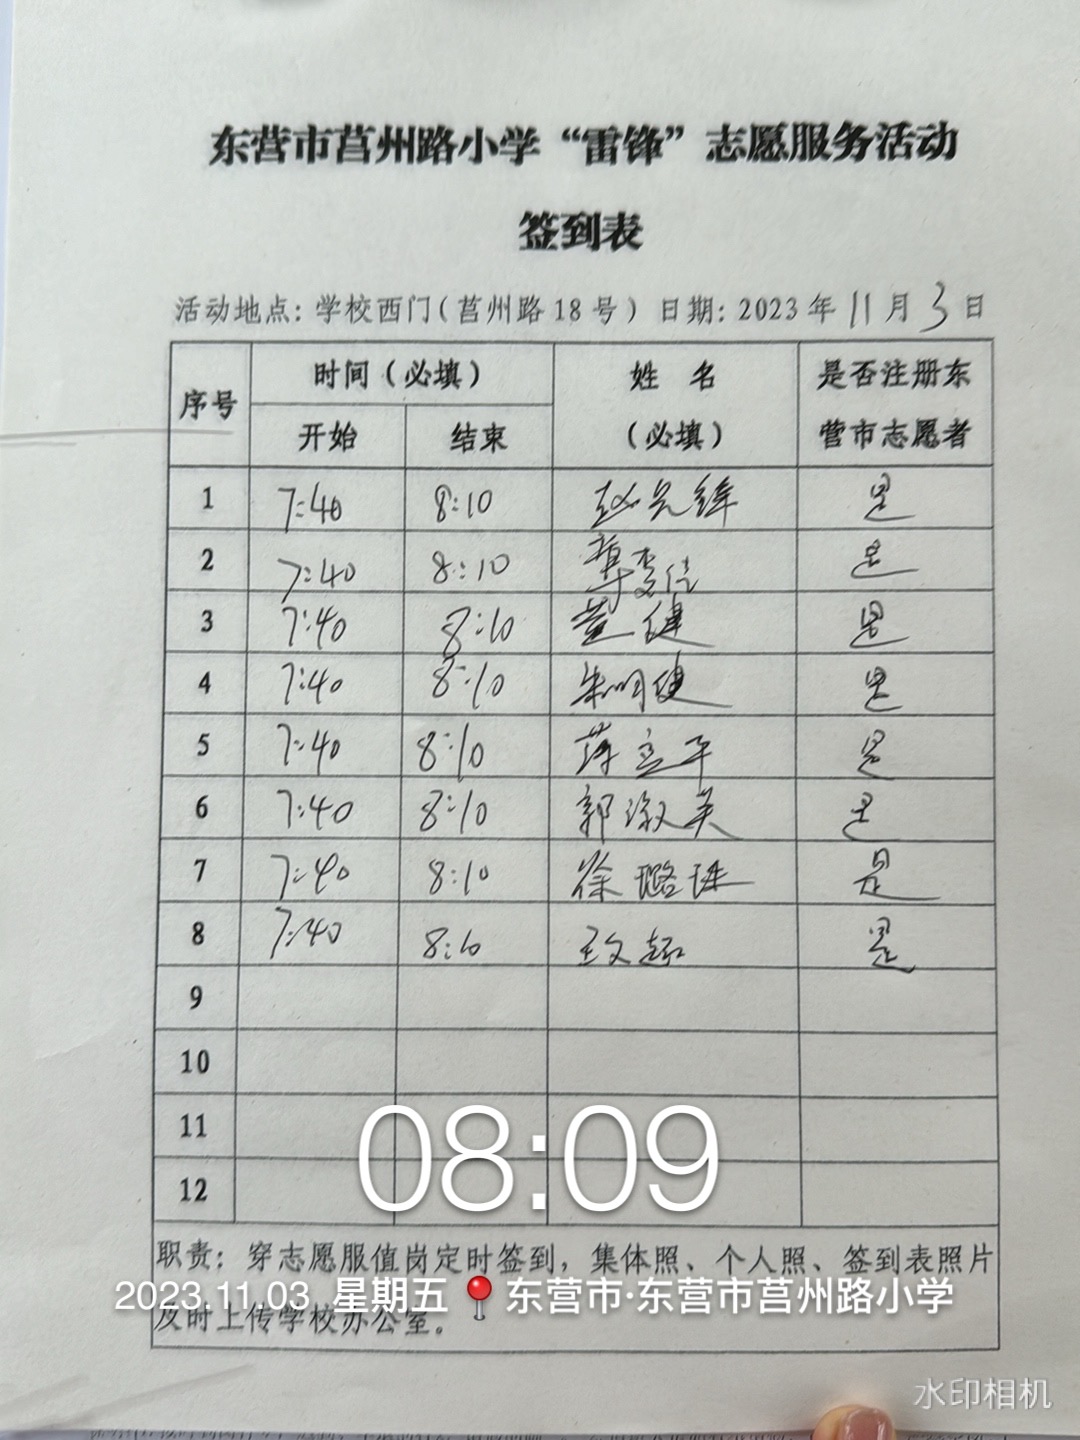 东营市莒州路小学“雷锋”志愿服务活动
签到表
活动地点：学校西门（莒州路18号）日期：2023年11月3日
序号 时间（必填） 姓 名 是否注册东
开始 结束 （必填） 营市志愿者
1 7:40 8:10 赵先锋 是
2 7:40 8:10 是
3 7:40 8:10 董健 是
4 7:40 8:10 朱明健 是
5 7:40 8:10 薛立平 是
6 7:40 8:10 郭淑美 是
7 7:40 8:10 徐璐珠 是
8 7:40 8:10 王文 是
9
10
11
12
08:09
职责：穿志愿服值岗定时签到，集体照、个人照、签到表照片
2023.11.03 星期五 东营市·东营市莒州路小学
及时上传学校办公室。
水印相机